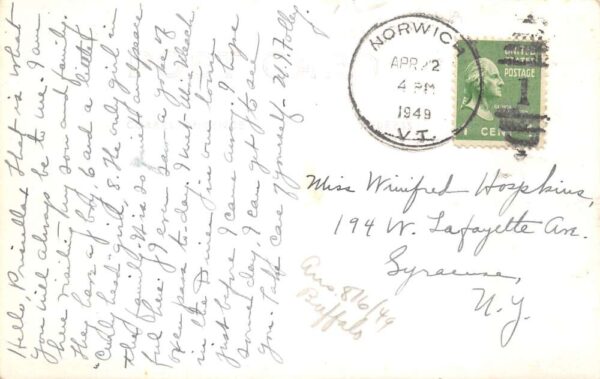 Hello, Priscilla! That is what
you will always be to me. I am
here visiting my son and family.
They have a boy, 6 and a little
"Curly head - girl, 8. The only girl in
the family. It is so quiet and peace
ful here. I even saw a yoke of
oxen pass to-day. I met Alice
in the Diner in our town
just before I came away. I hope
some day, I can get to see
you. Take care of yourself - M. J. Folley.
NORWICH
APR 22
4 PM
1949
VT.
UNITED
STATES
POSTAGE
1
1 CENT
Miss Winifred Hospkins,
194 W. Lafayette Ave.
Syracuse,
N.Y.
Ans. 8/6/49
Buffalo